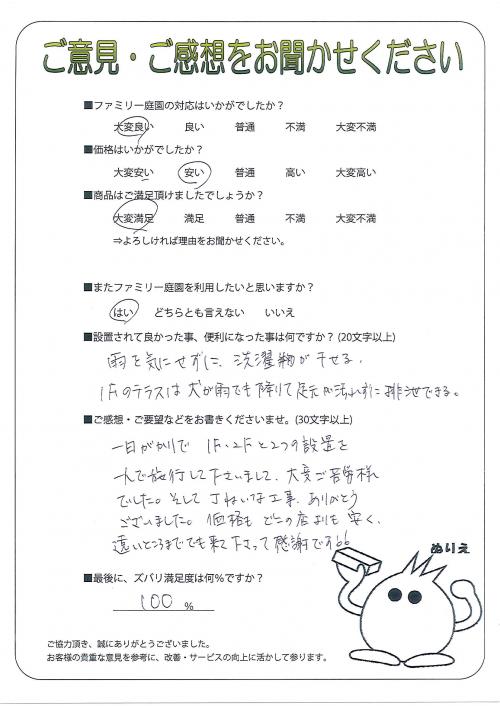 ご意見・ご感想をお聞かせください
■ファミリー庭園の対応はいかがでしたか?
大変良い 良い 普通 不満 大変不満
■価格はいかがでしたか?
大変安い 安い 普通 高い 大変高い
■商品はご満足頂けましたでしょうか?
大変満足 満足 普通 不満 大変不満
⇒よろしければ理由をお聞かせください。
■またファミリー庭園を利用したいと思いますか?
はい どちらとも言えない いいえ
■設置されて良かった事、便利になった事は何ですか? (20文字以上)
雨を気にせずに、洗濯物が干せる。
1Fのテラスは犬が雨でも降りて足元が汚れずに排泄できる。
■ご感想・ご要望などをお書きくださいませ。(30文字以上)
一日がかりで 1F・2Fと2つの設置を
一人で施行して下さいまして、大変ご苦労様
でした。そして ていねいな工事、ありがとう
ございました。価格も どこの店よりも 安く、
遠いところまででも来て下さって感謝です
ぬりえ
■最後に、ズバリ満足度は何%ですか?
100 %
ご協力頂き、誠にありがとうございました。
お客様の貴重な意見を参考に、改善・サービスの向上に活かして参ります。